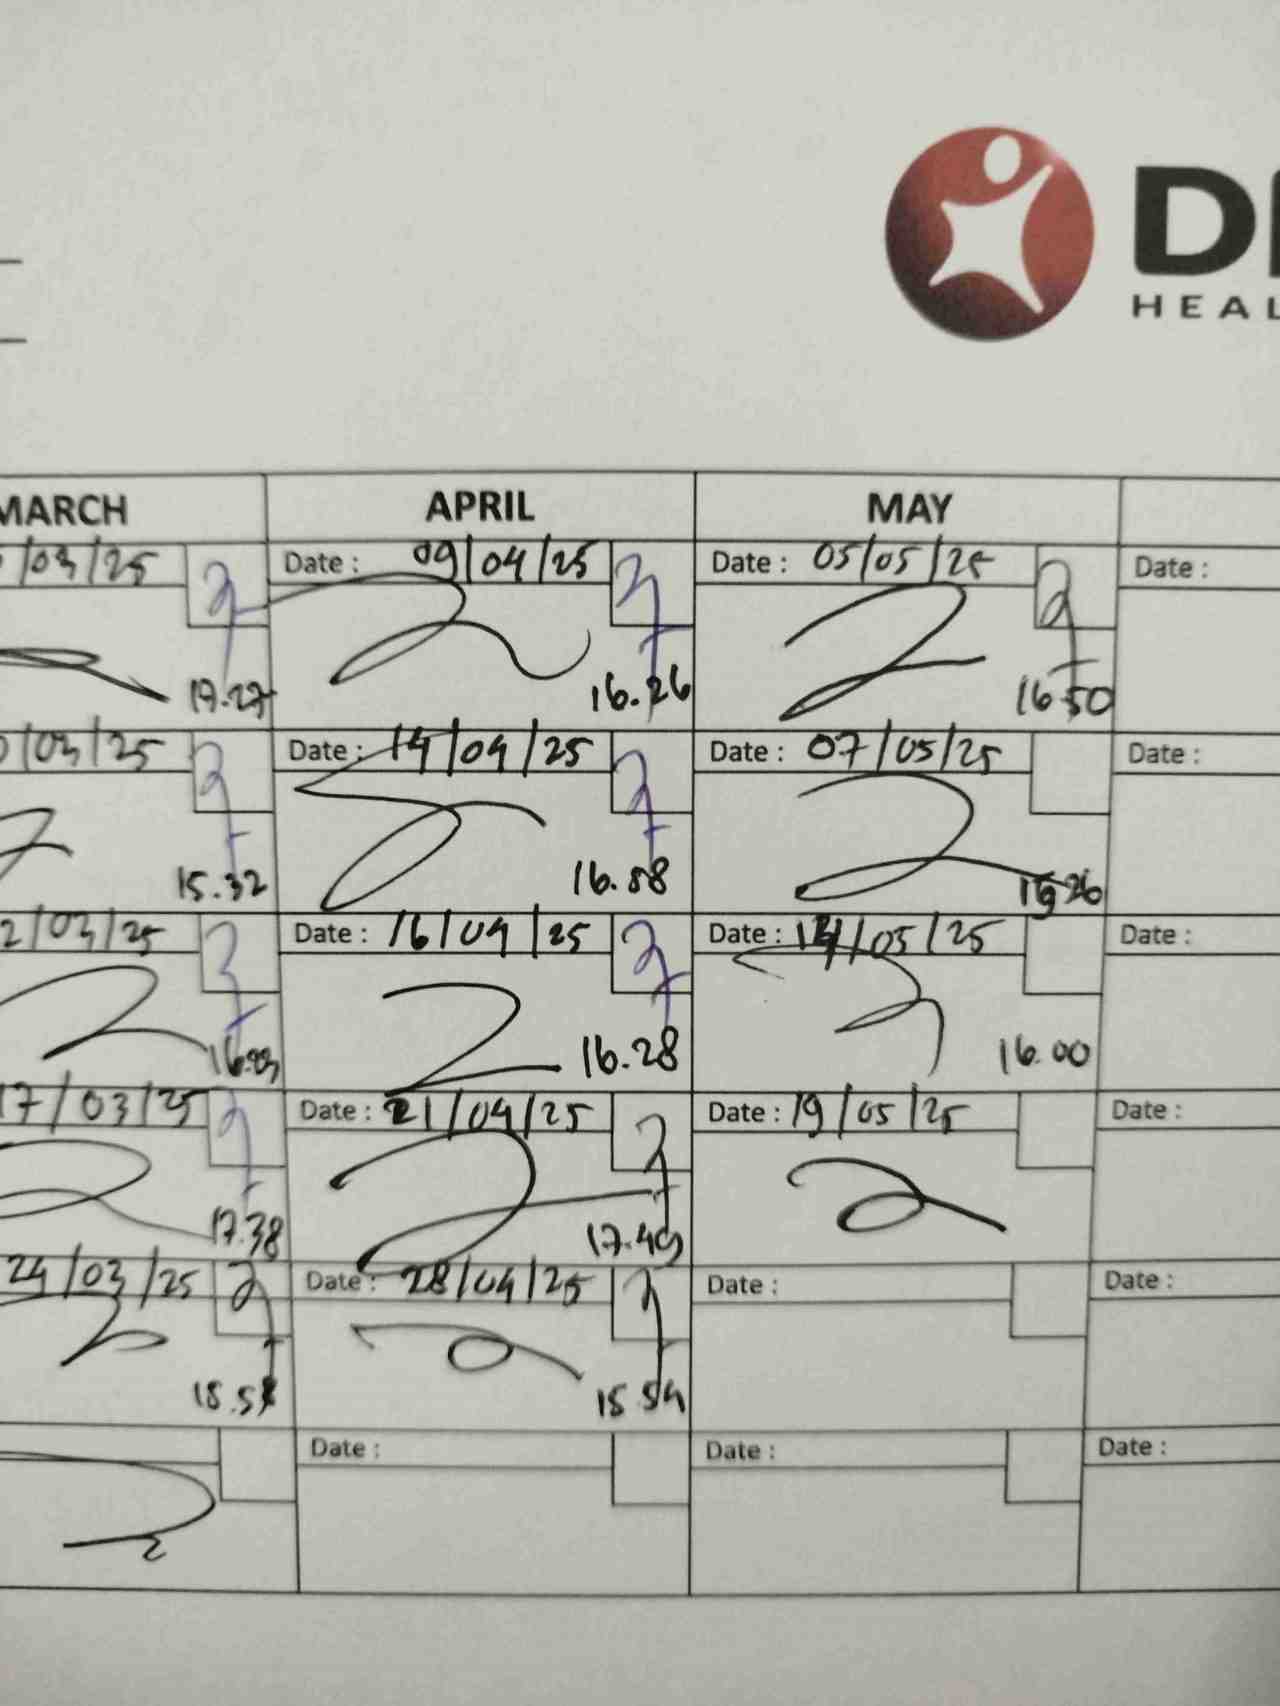 HEAL
MARCH APRIL MAY
/03/25 Date : 09/04/25 Date : 05/05/25 Date :
17.27 16.26 16.50
/03/25 Date : 14/04/25 Date : 07/05/25 Date :
15.32 16.58
2/03/25 Date : 16/04/25 Date : /05/25 Date :
16.28 16.00
17/03/25 Date : 21/04/25 Date : 19/05/25 Date :
17.38 17.49
24/03/25 Date : 28/04/25 Date : Date :
15.54
Date : Date : Date :